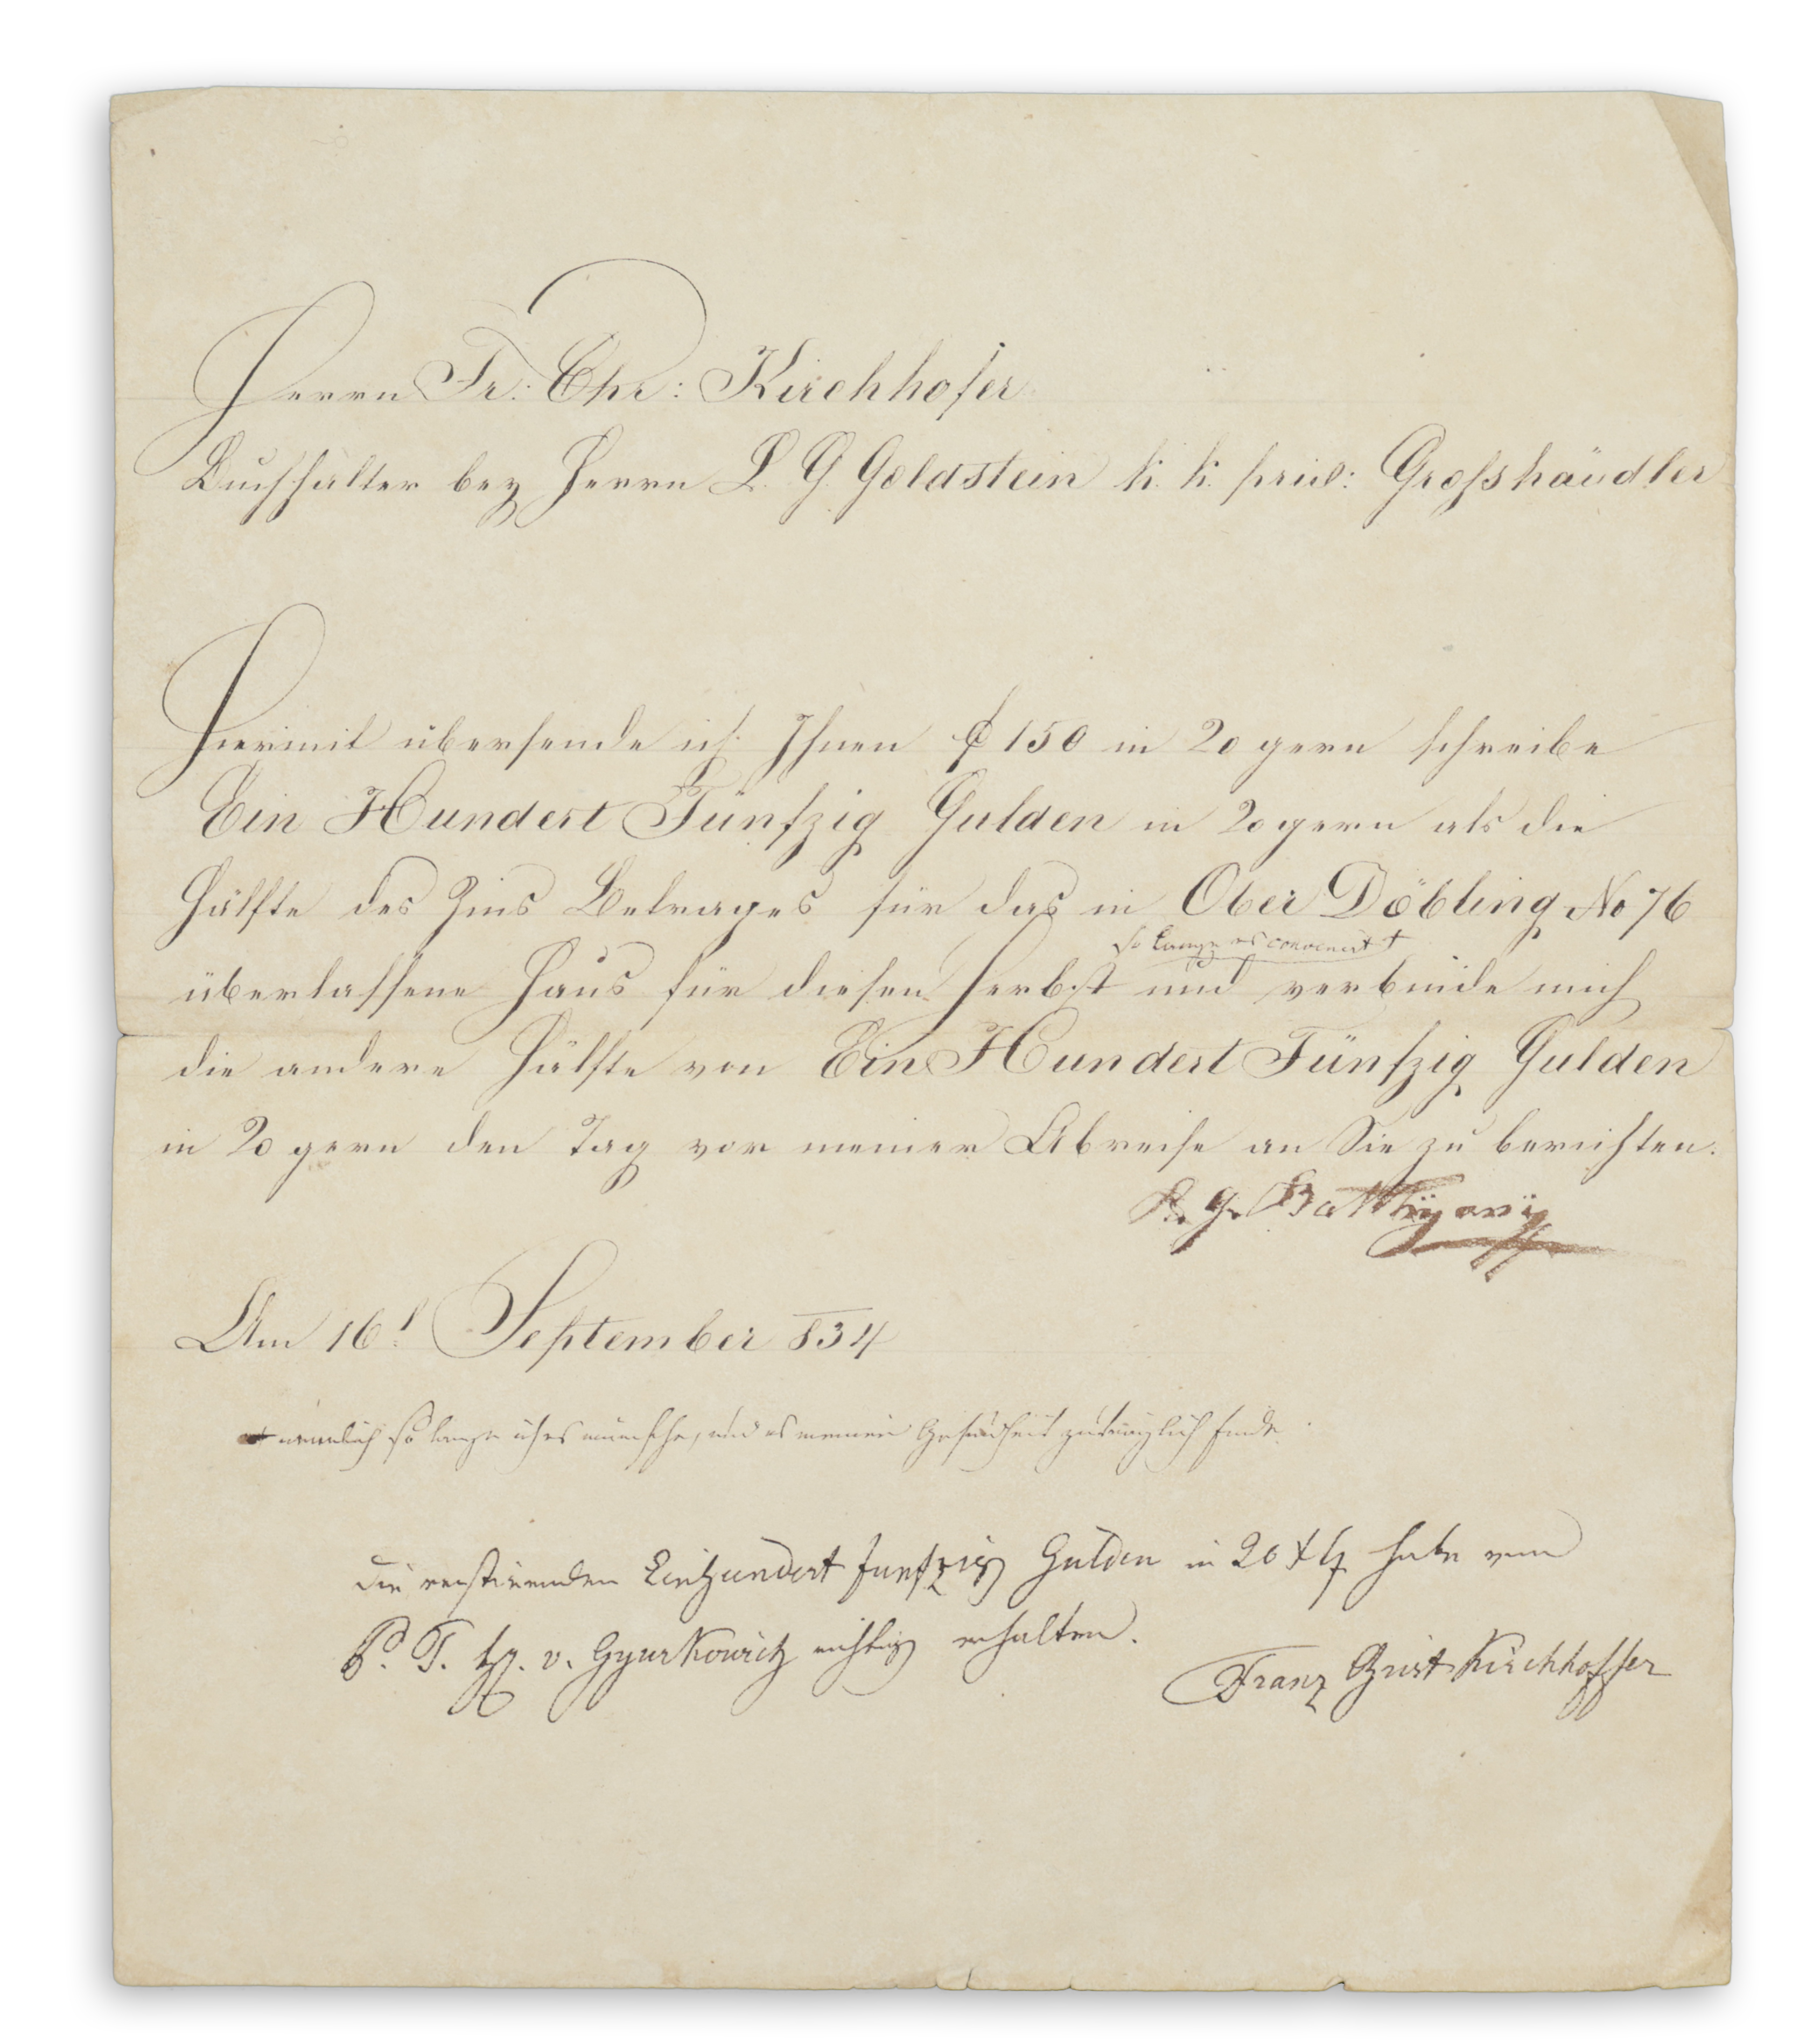 Herrn Fr: Chr: Kirchhofer
Buchhalter bey Herrn L. G. Goldstein k. k. priv: Großhändler
Hiermit übersende ich Ihnen f 150 in 20 gern schreibe
Ein Hundert Fünfzig Gulden in 20gern als die
Hälfte des Zins Betrages für das in Ober Döbling No 76
so lange es convenirt †
überlassene Haus für diesen Herbst und verbinde mich
die andere Hälfte von Ein Hundert Fünfzig Gulden
in 20 gern den Tag vor meiner Abreise an Sie zu berichten.
G. Batthÿanÿ
Am 16t September 834
† nemmlich so lange ich es wünsche, und es meiner Gesundheit zuträglich finde.
Die restirenden Einhundert funfzig Gulden in 20 habe von
P. T. H. v. Gyurkovich richtig erhalten.
Franz Christ Kirchhoffer